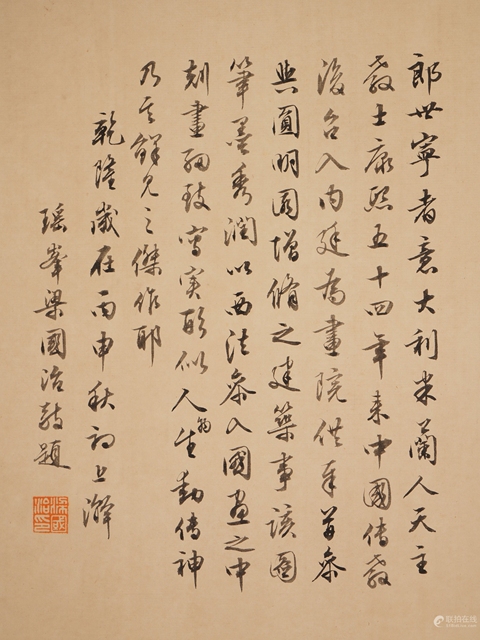 郎世寧者意大利米蘭人天主
教士康熙五十四年來中國傳教
後召入內廷為畫院供奉曾參
與圓明園增脩之建築事該圖
筆墨秀潤以西法參入國畫之中
刻畫細致寫实酷似人物生動傳神
乃其鮮見之傑作耶
乾隆歲在丙申秋初上澣
瑤峯梁國治敬題
梁國治印